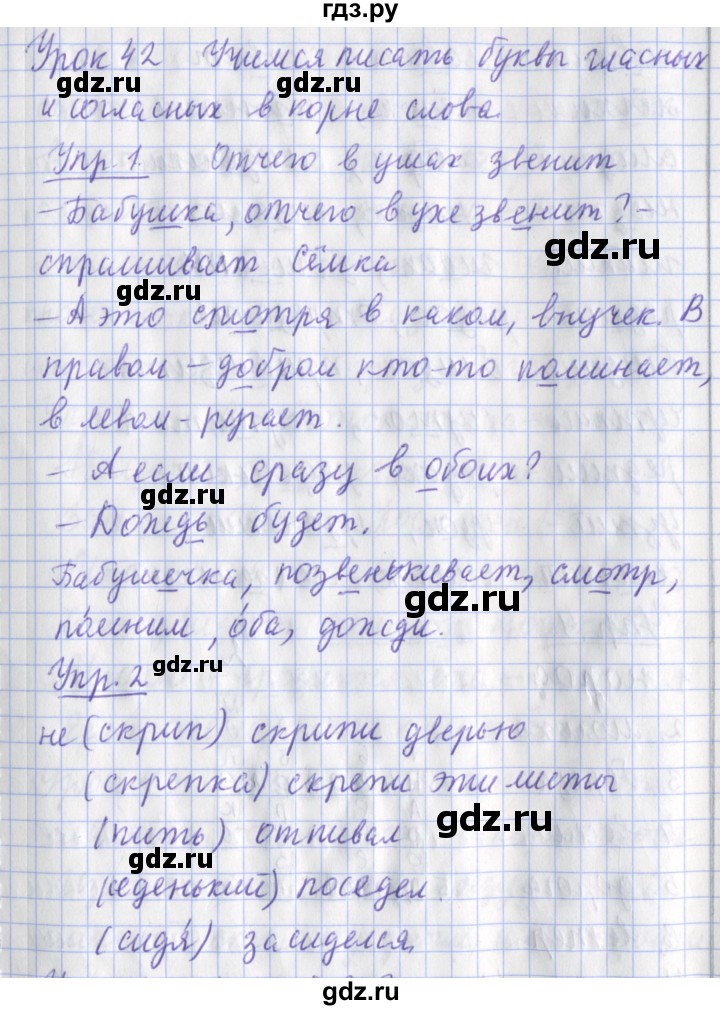 гдз.ру
Урок 42 Учимся писать буквы гласных
и согласных в корне слова.
Упр. 1. Отчего в ушах звенит
– Бабушка, отчего в ухе звенит? –
спрашивает Сёмка
– А это смотря в каком, внучек. В
правом – добром кто-то поминает,
в левом – ругает.
– А если сразу в обоих?
– Дождь будет.
Бабушечка, позвенькивает, смотр,
помним, оба, дожди.
Упр. 2
не (скрип) скрипи дверью
(скрепка) скрепи эти листы
(пить) отпивал
(седенький) поседел.
(сидя) засиделся,
gdz.ru
gdz.ru
gdz.ru
gdz.ru
gdz.ru
gdz.ru
gdz.ru
gdz.ru
gdz.ru
gdz.ru